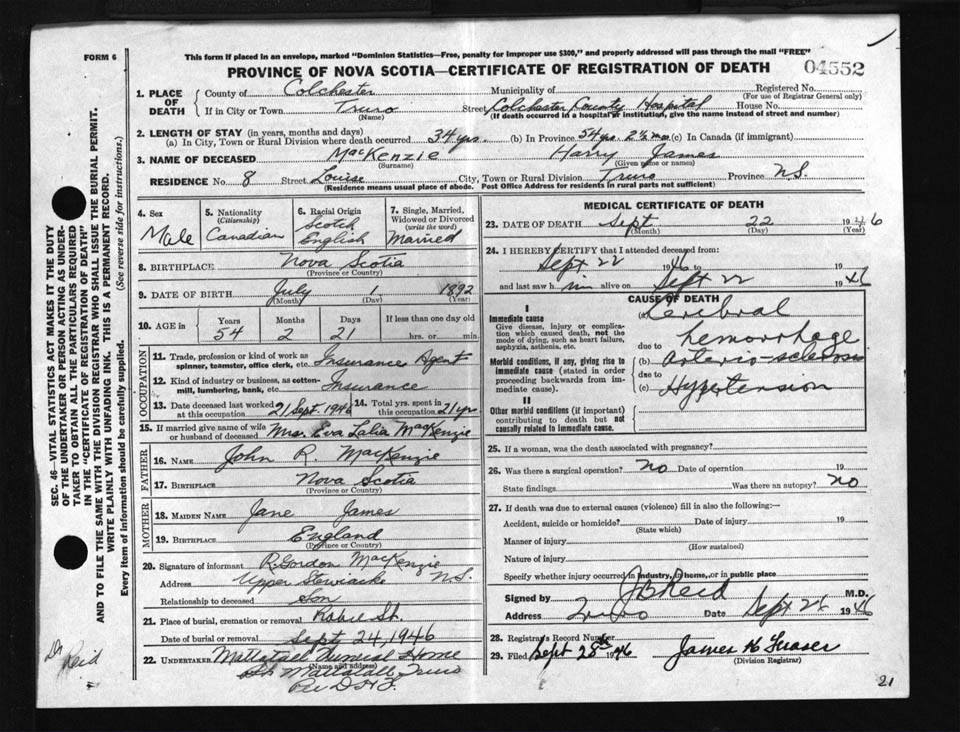 FORM 6
This form if placed in an envelope, marked "Dominion Statistics—Free, penalty for improper use $300," and properly addressed will pass through the mail "FREE"
PROVINCE OF NOVA SCOTIA—CERTIFICATE OF REGISTRATION OF DEATH 04552
1. PLACE OF DEATH County of Colchester Municipality of Registered No.
(For use of Registrar General only)
If in City or Town Truro Street Colchester County Hospital House No.
(Name) (If death occurred in a hospital or institution, give the name instead of street and number)
2. LENGTH OF STAY (in years, months and days)
(a) In City, Town or Rural Division where death occurred 34 yrs. (b) In Province 54 yrs. 2 ½ mos (c) In Canada (if immigrant)
3. NAME OF DECEASED MacKenzie Harry James
(Surname) (Given name or names)
RESIDENCE No. 8 Street Louise City, Town or Rural Division Truro Province N.S.
(Residence means usual place of abode. Post Office Address for residents in rural parts not sufficient)
4. Sex Male
5. Nationality (Citizenship) Canadian
6. Racial Origin Scotch English
7. Single, Married, Widowed or Divorced (write the word) Married
8. BIRTHPLACE Nova Scotia
(Province or Country)
9. DATE OF BIRTH July 1 1892
(Month) (Day) (Year)
10. AGE in Years Months Days If less than one day old
54 2 21 hrs. or min.
OCCUPATION
11. Trade, profession or kind of work as spinner, teamster, office clerk, etc. Insurance Agent
12. Kind of industry or business, as cotton-mill, lumbering, bank, etc. Insurance
13. Date deceased last worked at this occupation 21 Sept. 1946 14. Total yrs. spent in this occupation 21 yr.
15. If married give name of wife or husband of deceased Mrs. Eva Lalia MacKenzie
FATHER
16. NAME John R. MacKenzie
17. BIRTHPLACE Nova Scotia
(Province or Country)
MOTHER
18. MAIDEN NAME Jane James
19. BIRTHPLACE England
(Province or Country)
20. Signature of informant R. Gordon MacKenzie
Address Upper Stewiacke N.S.
Relationship to deceased Son
21. Place of burial, cremation or removal Robie St.
Date of burial or removal Sept. 24, 1946
22. UNDERTAKER Mattatall Funeral Home
(Name and address)
Mattatall Truro
Per
MEDICAL CERTIFICATE OF DEATH
23. DATE OF DEATH Sept 22 1946
(Month) (Day) (Year)
24. I HEREBY CERTIFY that I attended deceased from:
Sept 22 1946 to
and last saw him alive on Sept 22 1946
CAUSE OF DEATH
I
Immediate cause
Give disease, injury or complication which caused death, not the mode of dying, such as heart failure, asphyxia, asthenia, etc.
Morbid conditions, if any, giving rise to immediate cause (stated in order proceeding backwards from immediate cause).
II
Other morbid conditions (if important) contributing to death but not causally related to immediate cause.
(a) Cerebral
due to hemorrhage
(b) Arterio-sclerosis
due to
(c) Hypertension
25. If a woman, was the death associated with pregnancy?
26. Was there a surgical operation? no Date of operation 19
State findings Was there an autopsy? no
27. If death was due to external causes (violence) fill in also the following:—
Accident, suicide or homicide? Date of injury 19
(State which)
Manner of injury
(How sustained)
Nature of injury
Specify whether injury occurred in industry, in home, or in public place
Signed by J B Reid M.D.
Address Truro Date Sept 1946
28. Registrar's Record Number
29. Filed Sept 25th 1946 James H Fraser
(Division Registrar)
SEC. 46—VITAL STATISTICS ACT MAKES IT THE DUTY
OF THE UNDERTAKER OR PERSON ACTING AS UNDER-
TAKER TO OBTAIN ALL THE PARTICULARS REQUIRED
IN THE "CERTIFICATE OF REGISTRATION OF DEATH"
AND TO FILE THE SAME WITH THE DIVISION REGISTRAR WHO SHALL ISSUE THE BURIAL PERMIT.
WRITE PLAINLY WITH UNFADING INK. THIS IS A PERMANENT RECORD.
Every item of information should be carefully supplied. (See reverse side for instructions.)
Dr Reid
21